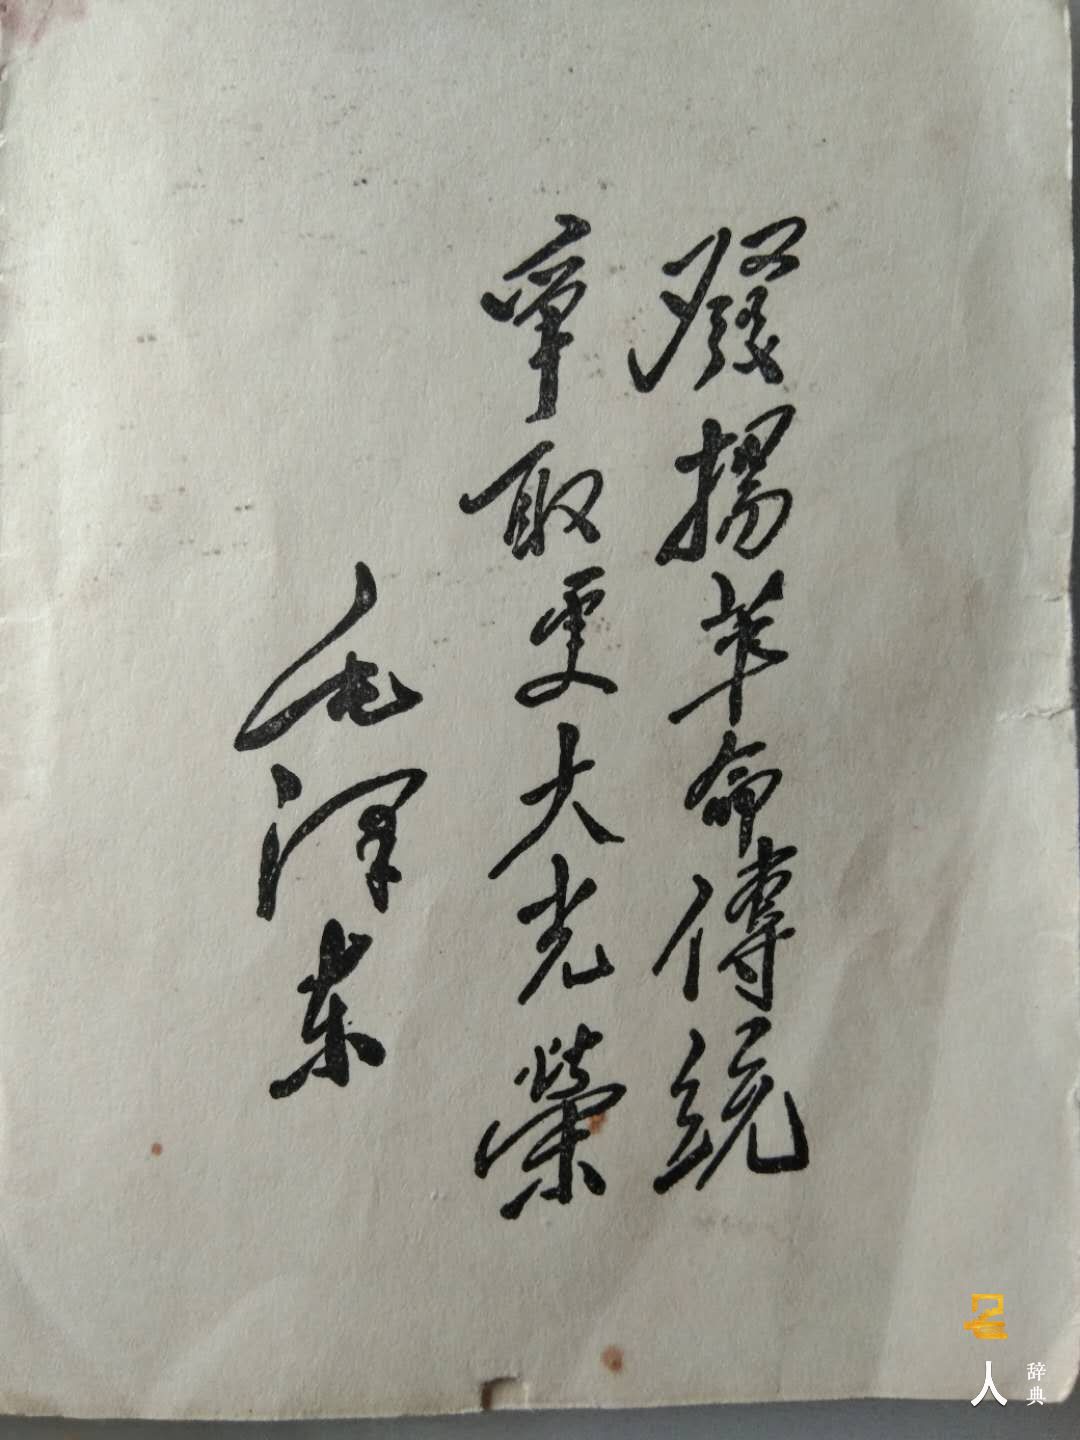 發揚革命傳統
爭取更大光榮
毛澤东
名
人
辞典